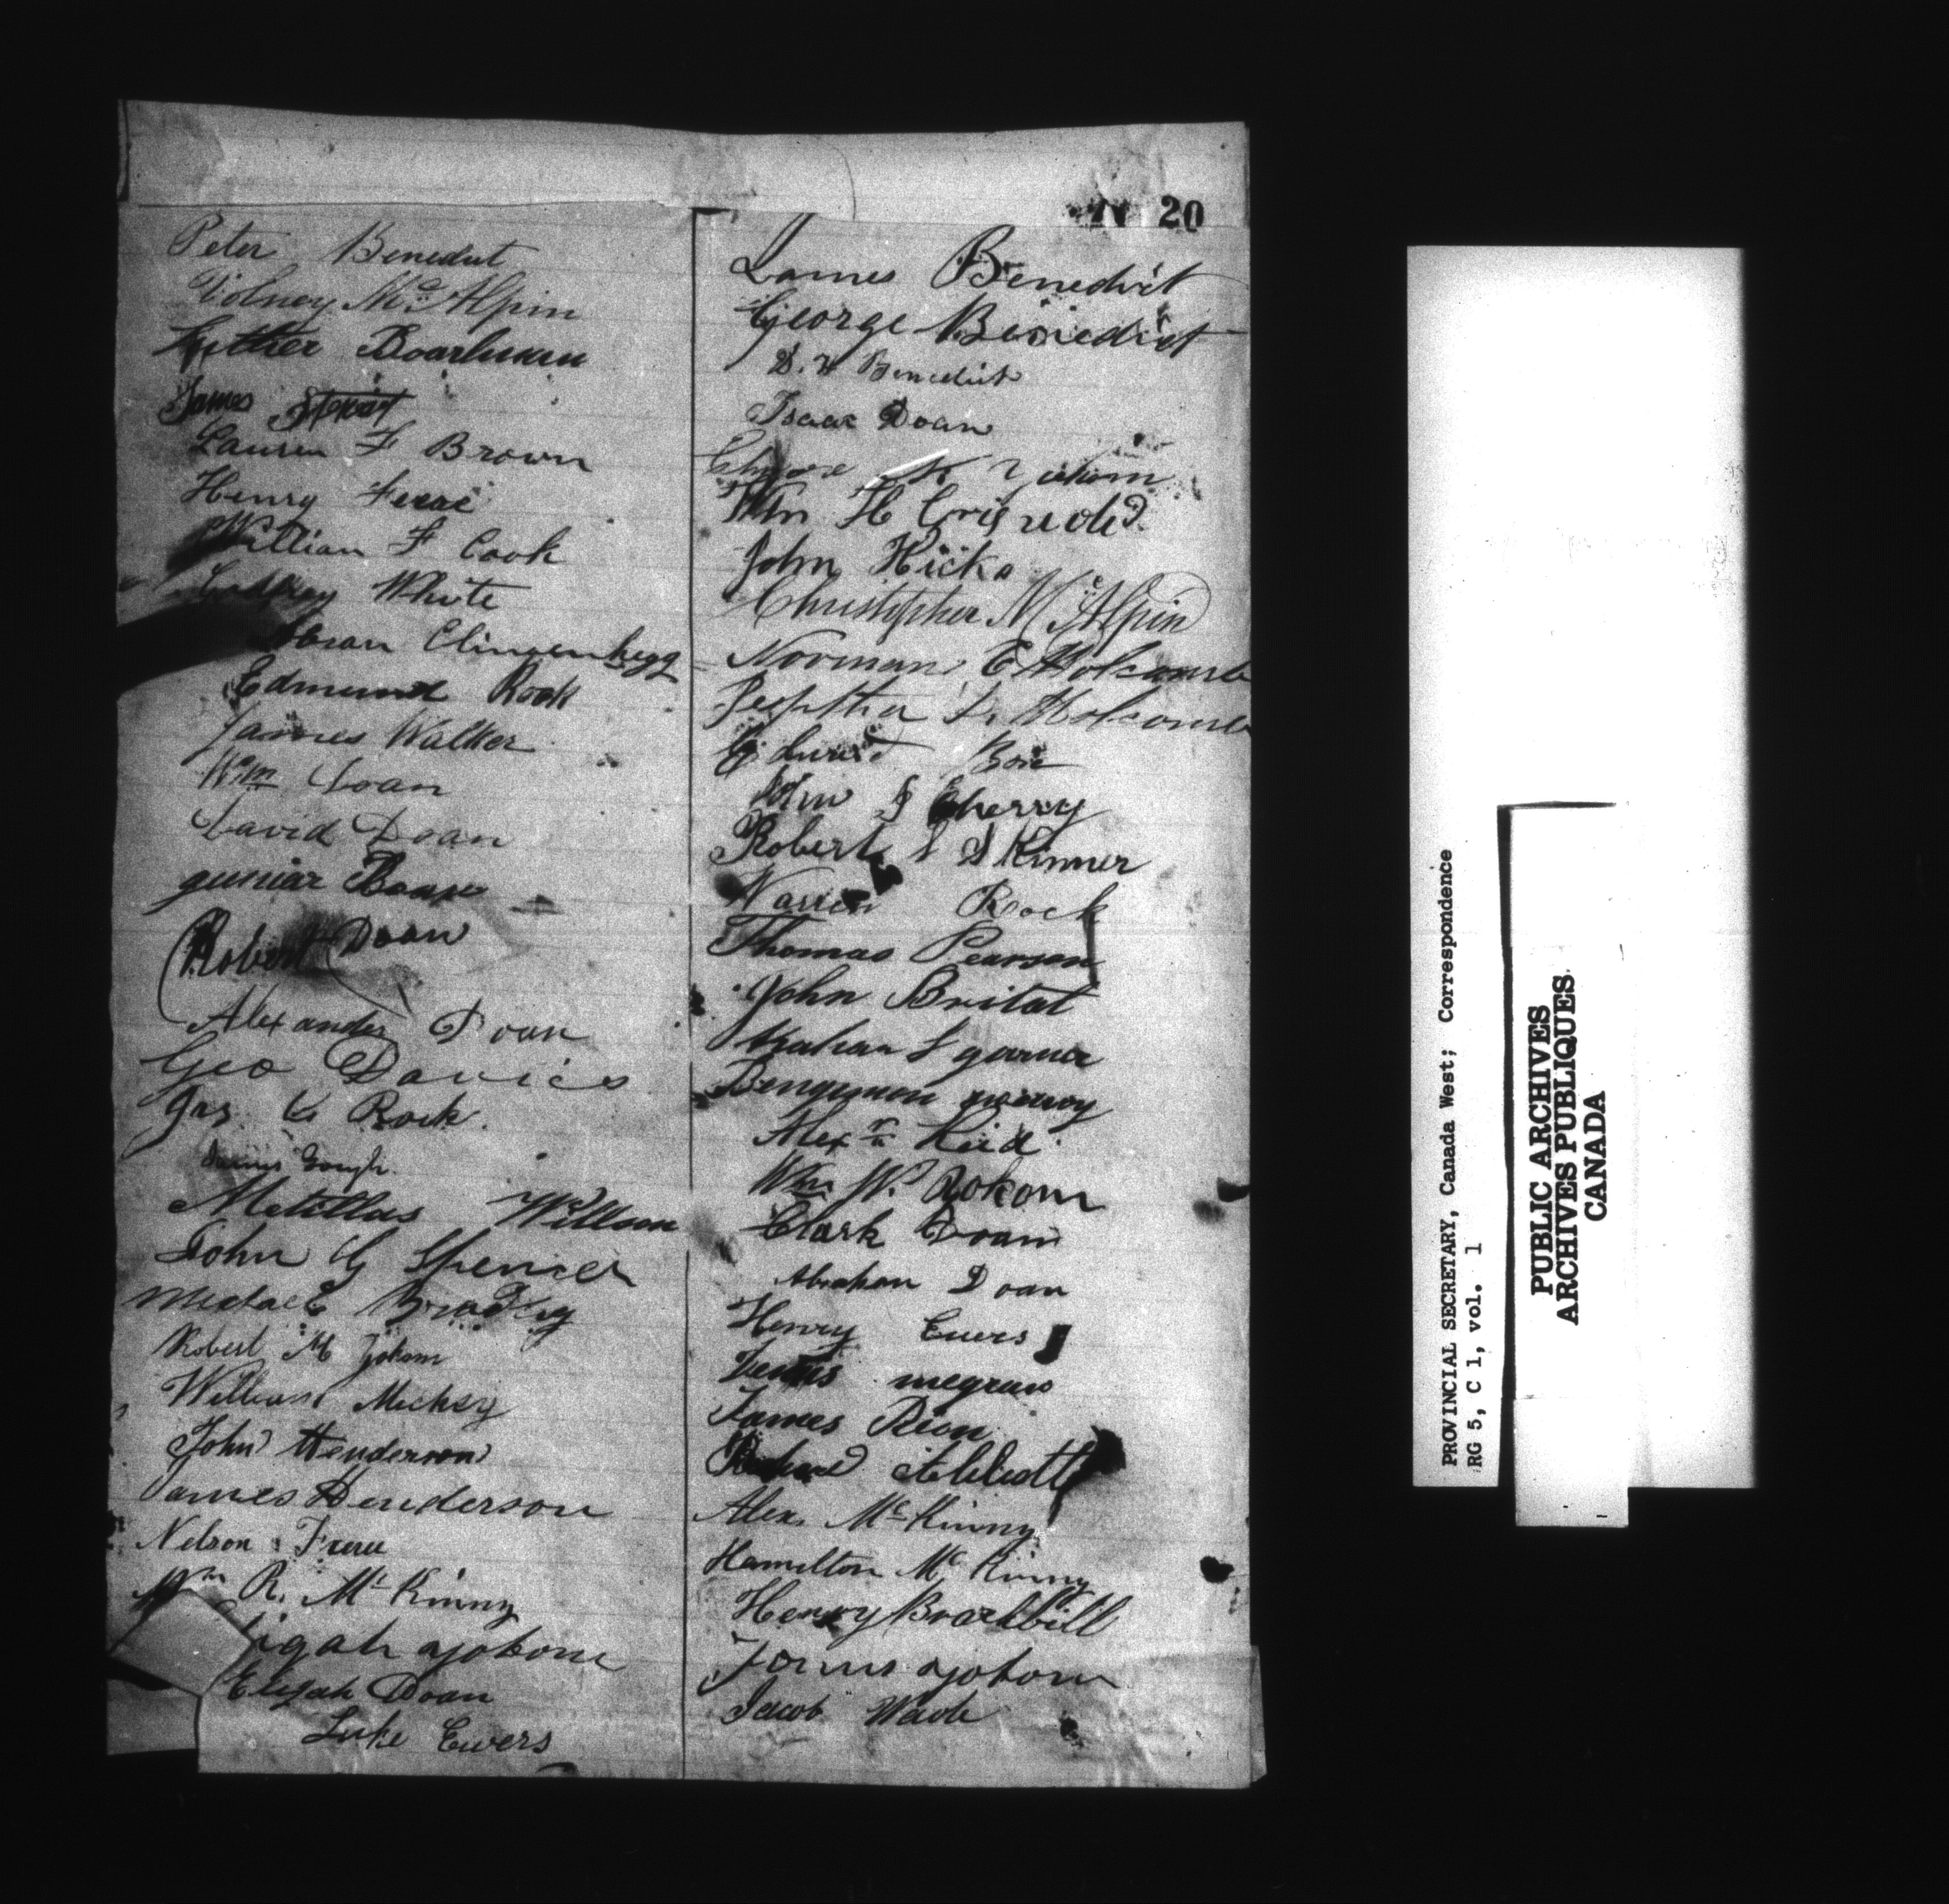 20
Peter Benedict
Volney Mc Alpin
Luther Boarhman
James Stewart
Lauren F Brown
Henry Ferre
William F Cook
Godfrey White
Abram Clingenhegg
Edmund Rock
James Walker
Wm Doan
David Doan
juniar Doan
Robert Doan
Alexander Doan
Geo Davies
Jas G Rock.
James Gough.
Matillas Willson
John G Spencer
Michael Bradley
Robert M Yokom
William Micksy
John Henderson
James Henderson
Nelson Frere
Wm R. Mc Kinny
igah yokom
Elijah Doan
Luke Ewers
James Benedict
George Benedict
D. W Benedict
Isaac Doan
K Yokom
Wm H
John Hicks
Christopher Mc Alpin
Norman E Holcomb
Jephtha L. Holcomb
Edward Boie
Wm J Cherry
Robert S Skinner
Warren Rock
Thomas Pearson
John Britat
Abraham S garner
Bengemen
Alexr Reid
Wm W. Yokom
Clark Doan
Abraham Doan
Henry Ewers
megraw
James Rion
Richard Abbott
Alex. Mc Kinny
Hamilton Mc Kinny
Henry Brackbill
James yokom
Jacob Wade
PROVINCIAL SECRETARY, Canada West; Correspondence
RG 5, C 1, vol. 1
PUBLIC ARCHIVES
ARCHIVES PUBLIQUES
CANADA